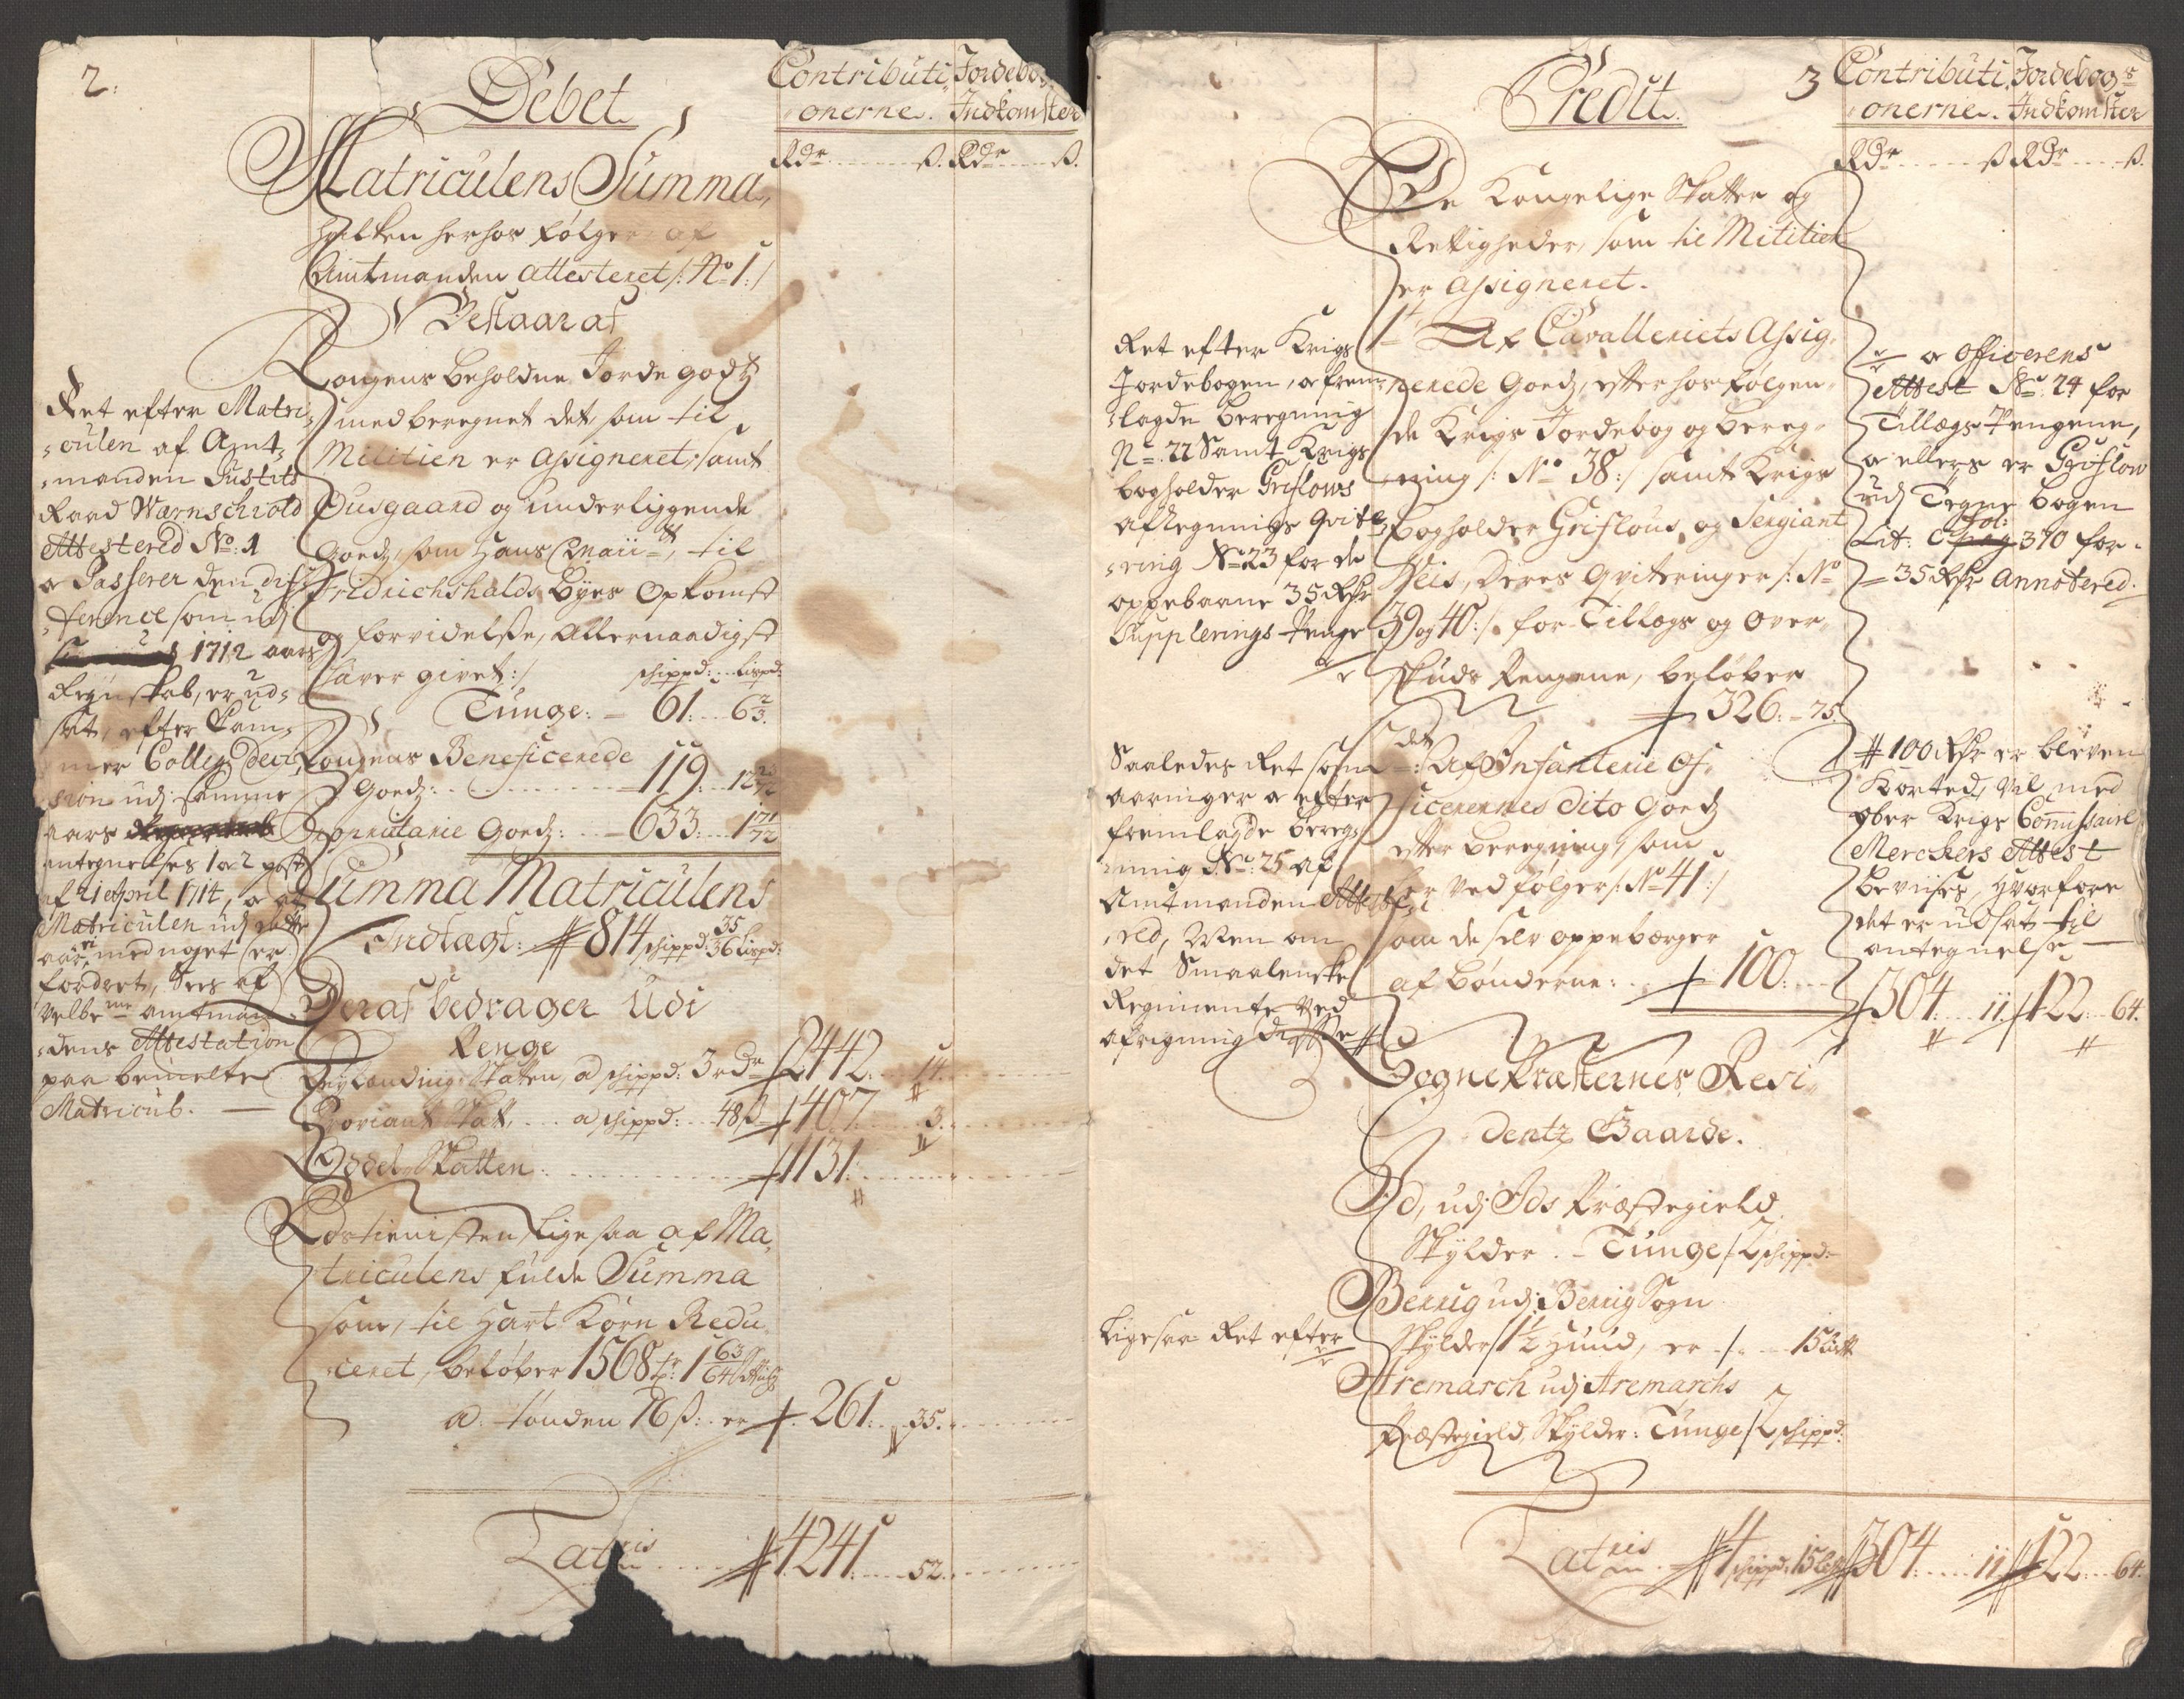 2.
Debet
Contributi
onerne.
Jordebo
Indkomster
Rdr ß. Rdr ß.
Matriculens Summa,
hvilken herhos følger af
Amtmanden attesteret /: No 1: /
Bestaar af
Kongens beholdne Jorde godtz
med beregnet det som til
Militien er assigneret, samt
Ousgaard og underliggende
Goedz, som Hans Maii-tt, til
Fridrichshalds Byes Opkomst
og forvidelse, Allernaadigst
haver givet :/ schippd: Lispd:
Tunge: 61: 6 2/3
Kongens Beneficerede
Goedz: 119: 12
Proprietarie Goedz: 633: 1 71/72
Summa Matriculens
Indtægt: 814 schippd: 35/36 Lispd:
Deraf bedrager Udi
Penge
Leylending Skatten, a schippd: 3 rdr 2442: 14.
Proviant Skatt, a schippd: 48 ß 407 3.
Oddel Skatten: 1131:
Rostienisten ligesaa af Ma,
triculens fulde Summa
som, til Hart Korn Redu
ceret, beløber 1568 tr: 1 63/64
a tønden 16 ß: er 261: 35.
Latris 4241: 52.
Ret efter Matri
culen af Amt
manden Justits
Raad Wærnschiold
Attestered No: 1
a Passerer den dif
ference som udj
1712 aars
Regnskab, er ud
sat, efter Cam
mer Colleg: Deci
sion udj samme
aars
antegnelses 1 a 2 post
af 21 April 1714, a at
Matriculen udj dette
aar ei med noget er
fordret, Sees af
Velb:ne amtman
dens Attestation
paa bemelte
Matricul.
3
Credit
Contributi
onerne.
Jordebogs
Indkomster
Rdr ß Rdr ß.
De Kongelige Skatter og
Rettigheder, som til Militien
er assigneret.
1t Af Cavalleriets Assig,
nerede Goedz, efter hosfølgen,
de Krigs Jordebog og bereg,
ning /: No 38: / samt Krigs
bogholder Griflous, og Sergiant
Heis, deres Qviteringer /: No
39 og 40: / for Tillægs og Over,
skuds Pengene, beløber
326: 75.
2den: Af Infanterie Of,
ficerernes dito Goedz
efter beregning, som
her ved følger /: No 41: /
som de selv oppebærger
af bønderne: 100:
304: 11. 122: 64.
Sogne Præsternes Resi,
dentz Gaarde.
Id, udj Ids Præstegield
Skylder Tunge / 2 schippd:
Berrig udj Berrig Sogn
Skylder / 1½ Huud, er / 15 Lis
Aremarch udj Aremarchs
Præstegield, Skylder: Tunge / 2 schippd:
Latris 4 schippd: 15 304: 11 122: 64.
Ret efter Krigs
Jordebogen, a frem
lagde beregning
No 22 Samt Krigs
bogholder Griflows
Afregnings Qvite
ring No 23 for de
oppebaarne 35 Rdr
Supplerings Penge
Saaledes Ret som
aaringer a efter
fremlagde bereg
ning No: 25 af
Amtmanden Attest
red, Men om
det Smaalenske
Regimente Ved
afregning
Ligesaa Ret efter
a Officerens
Attest No: 24 for
Tillægs Pengene,
a ellers er Griflow
udj Tegne bogen
Lit: C fol: 370 for
35 Rdr Annotered.
100 Rdr er bleven
Korted, Vel med
Ober Krigs Commissaire
Merckers Attest
beviises, Hvorfore
det er udsat til
antegnelse